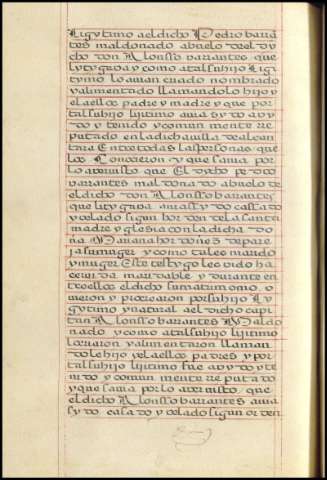 Ligytimo ael dicho Pedro barra
tes maldonado abuelo del dy
cho don Alonsso barrantes que
lytygava y como a tal su hijo ligi
tymo lo avian criado nombrado
y alimentado llamandolo hijo y
el a ellos padre y madre y que por
tal su hijo lijitimo avia sydo avy
do y tenido y comun mente re
putado en la dicha villa de alcan
tara Entre todas las personas que
los Conocieron y que savia por
lo aver visto que El dycho pedro
varrantes maldonado abuelo de
el dicho don Alonsso barrantes
que litygava avia sydo cassado
y velado sigun horden de la santa
madre yglesia con la dicha do
ña Mariana hordoñes de pare
ja su muger y como tales marido
y muger Este testygo les vido ha
cer vida maridable y durante en
tre ellos el dicho su matrimonio o
vieron y procrearon por su hijo Ly
gytimo y natural al dicho capi
tan Alonsso barrantes Maldo
nado y como a tal su hijo lijitimo
lo criaron y alimentaron llaman
dole hijo y el a ellos padres y por
tal su hijo lijitimo fue avydo y te
nido y comun mente reputado
y que savia por lo aver visto que
el dicho Alonsso barrantes avia
sydo casado y velado sigun orden